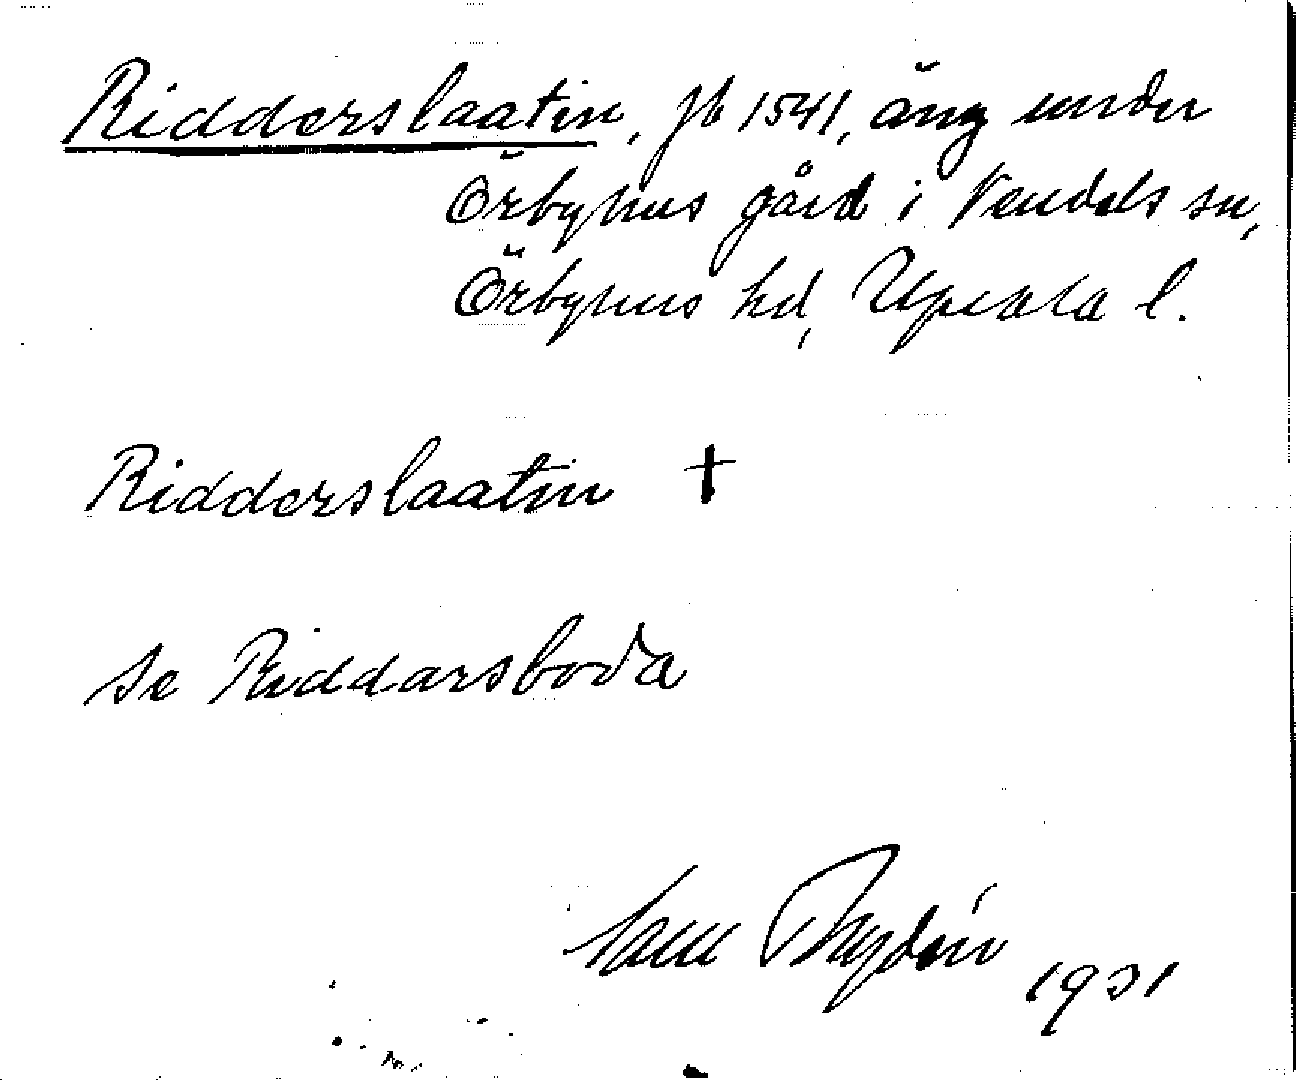 Ridderslaatin, Jb 1541, äng under
Örbyhus gård i Vendels sn,
Örbyhus hd, Upsala l.
Ridderslaatin †
se Riddarsboda
Rydén 1931